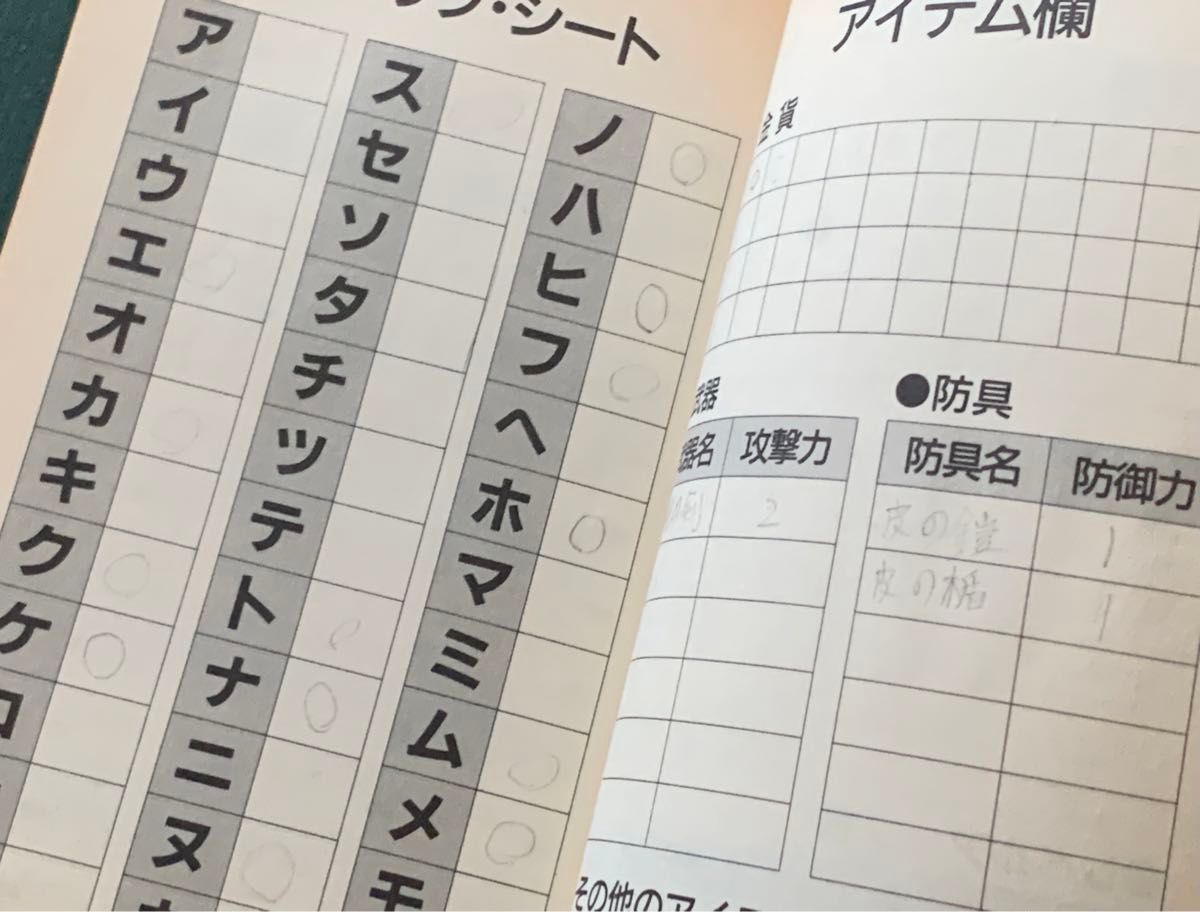 シート
ア
イ
ウ
エ
オ
カ
キ
ク
ケ
コ
ス
セ
ソ
タ
チ
ツ
テ
ト
ナ
ニ
ヌ
ノ
ハ
ヒ
フ
ヘ
ホ
マ
ミ
ム
メ
モ
アイテム欄
金貨
武器
武器名 攻撃力
2
●防具
防具名 防御力
皮の鎧 1
皮の楯 1
その他のアイ